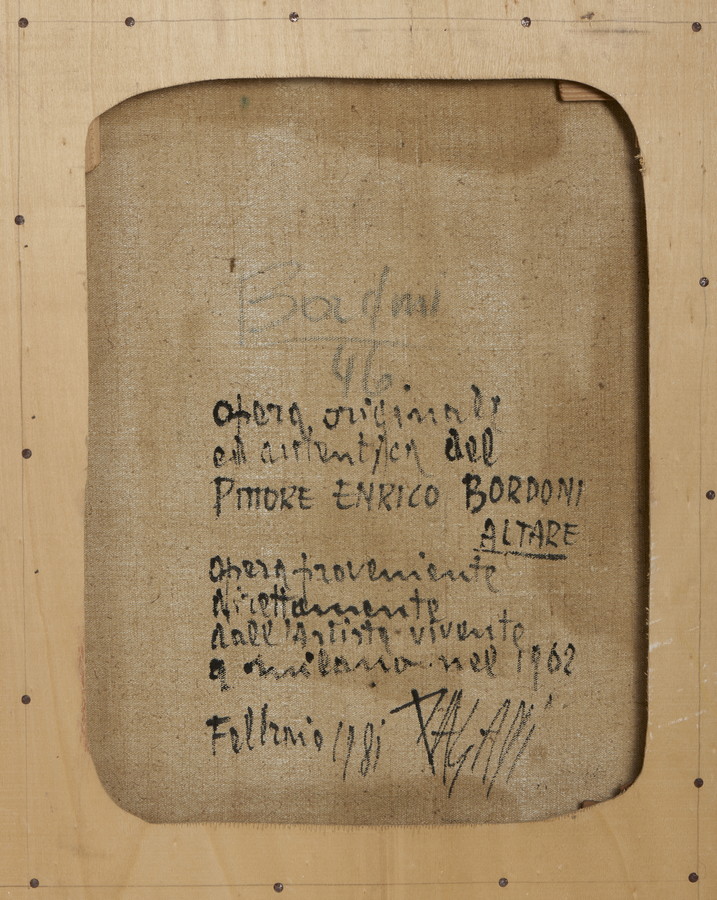 Bordoni
46
opera originale
ed autentica del
PITTORE ENRICO BORDONI
ALTARE
opera proveniente
direttamente
dall'Artista vivente
a milano nel 1962
Febbraio 1981 PAGANI